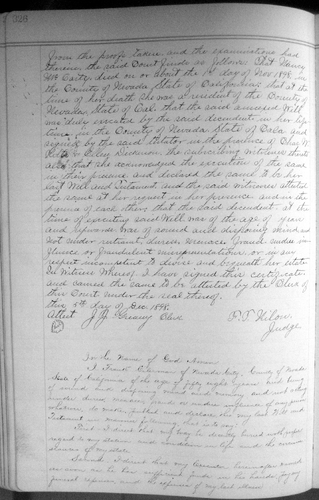 328
From the proofs taken and the examinations had
therein the said Court finds as follows: That Nancy
McCarty died on or about the 1st day of Nov 1898, in
the County of Nevada, State of California; that at the
time of her death she was a resident of the County of
Nevada, State of Cal. that the said annexed Will
was duly executed by the said decedent in her life
time in the County of Nevada, State of Cala and
signed by the said in the presence of Chas W
and Dickerson the subscribing witnesses thereto
also that she acknowledged the execution of the same
in their presence and declared the same to be her
last Will and Testament and the said witnesses attested
the same at her request in her presence and in the
presence of each other that the said decedent at the
time of executing said Will was of the age of years
and upwards was of sound and disposing mind and
not under restraint, duress, menace, fraud, undue in-
fluence or fraudulent misrepresentations, or in any
respect incompetent to devise and bequeath her estate
In Witness Whereof I have signed this certificate
and caused the same to be attested by the Clerk of
this Court under the seal thereof.
this 5th day of Dec 1898.
Attest J. J. Greany Clerk
Judge
In the Name of God Amen.
I of Nevada City, County of Nevada
State of California of the age of fifty eight years and being
of sound and disposing mind and memory and not acting
under duress, menace, fraud or undue influence of any person
whatever, do make publish and declare this my last Will and
Testament in manner following that is to say:
First I direct that my body be decently buried with proper
regard to my station and condition in life and the circum-
stances of my estate.
Second I direct that my Executor hereinafter named
as soon as he has sufficient funds in his hands pay my
funeral expenses and the expenses of my last illness